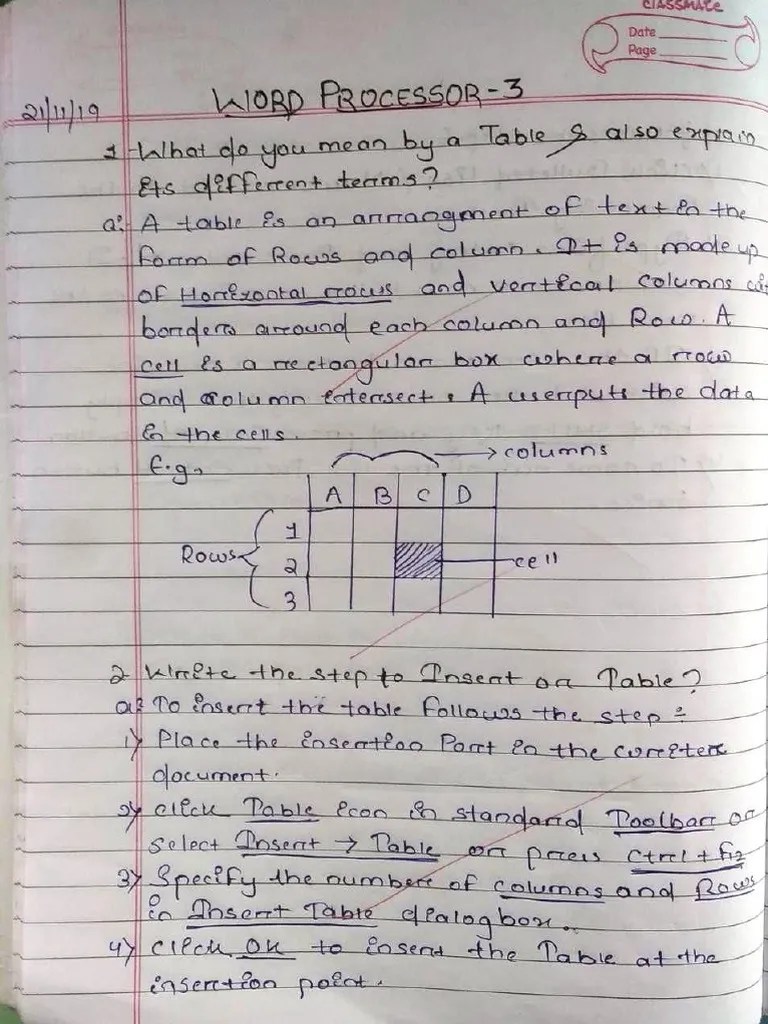 CLASSMATE
Date
Page
21/11/19
WORD PROCESSOR-3
1 What do you mean by a Table & also explain
its different terms?
a: A table is an arrangment of text in the
form of Rows and column. It is made up
of Horizontal rows and vertical columns
borders around each column and Row. A
cell is a rectangular box where a row
and column intersect. A user puts the data
in the cells.
E.g.,
columns
A B C D
1
Rows 2 cell
3
2 Write the step to Insert on Table?
a: To insert the table follows the step:
1) Place the insertion Point in the
document.
2) click Table icon in standard Toolbar or
select Insert → Table or press Ctrl + F12
3) Specify the numbers of columns and Rows
in Insert Table dialogbox.
4) click OK to insert the Table at the
insertion point.